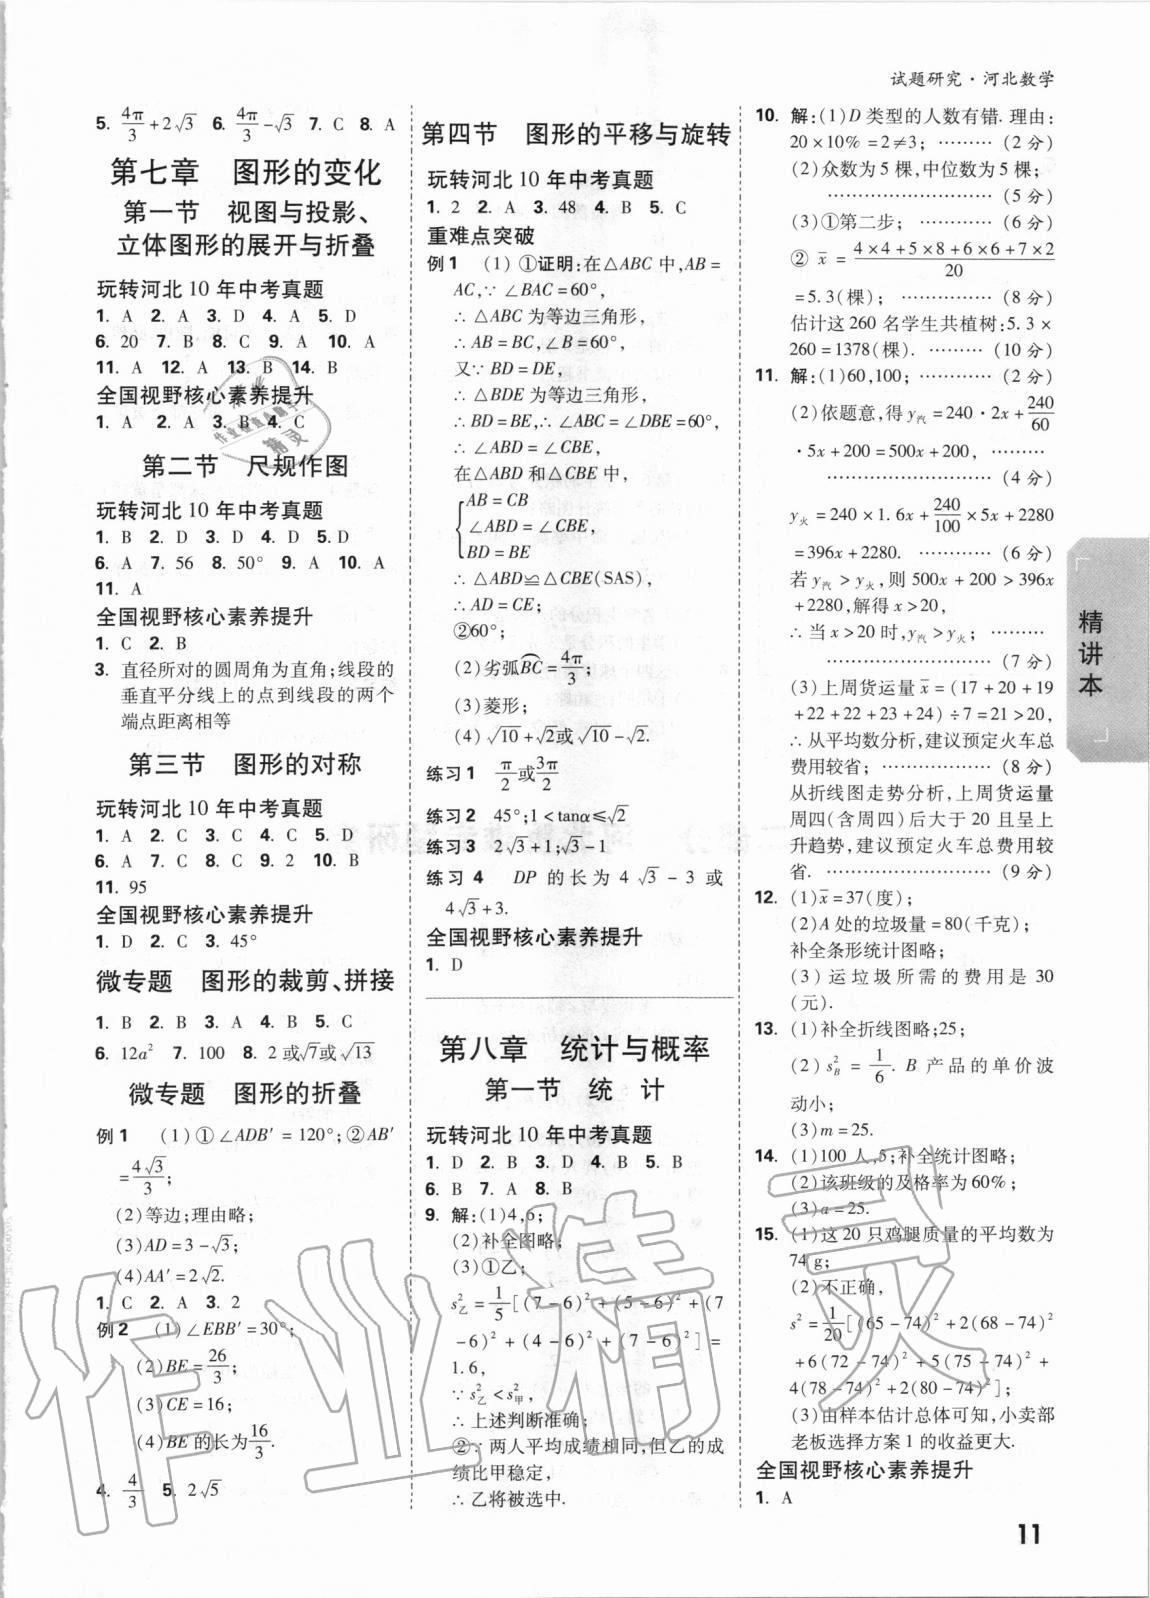 试题研究·河北数学
5. 4π/3+2√3 6. 4π/3-√3 7. C 8. A
第七章 图形的变化
第一节 视图与投影、
立体图形的展开与折叠
玩转河北10年中考真题
1. A 2. A 3. D 4. A 5. D
6. 20 7. B 8. C 9. A 10. A
11. A 12. A 13. B 14. B
全国视野核心素养提升
1. A 2. A 3. B 4. C
第二节 尺规作图
玩转河北10年中考真题
1. B 2. D 3. D 4. D 5. D
6. A 7. 56 8. 50° 9. A 10. A
11. A
全国视野核心素养提升
1. C 2. B
3. 直径所对的圆周角为直角;线段的
垂直平分线上的点到线段的两个
端点距离相等
第三节 图形的对称
玩转河北10年中考真题
1. A 2. C 3. C 4. C 5. C
6. A 7. C 8. C 9. 2 10. B
11. 95
全国视野核心素养提升
1. D 2. C 3. 45°
微专题 图形的裁剪、拼接
1. B 2. B 3. A 4. B 5. C
6. 12a² 7. 100 8. 2或√7或√13
微专题 图形的折叠
例1 (1)①∠ADB′=120°;②AB′
=4√3/3;
(2)等边;理由略;
(3)AD=3-√3;
(4)AA′=2√2.
1. C 2. A 3. 2
例2 (1)∠EBB′=30°;
(2)BE=26/3;
(3)CE=16;
(4)BE的长为16/3.
4. 4/3 5. 2√5
第四节 图形的平移与旋转
玩转河北10年中考真题
1. 2 2. A 3. 48 4. B 5. C
重难点突破
例1 (1)①证明:在△ABC中,AB=
AC,∵∠BAC=60°,
∴△ABC为等边三角形,
∴AB=BC,∠B=60°,
又∵BD=DE,
∴△BDE为等边三角形,
∴BD=BE,∴∠ABC=∠DBE=60°,
∴∠ABD=∠CBE,
在△ABD和△CBE中,
AB=CB
∠ABD=∠CBE,
BD=BE
∴△ABD≌△CBE(SAS),
∴AD=CE;
②60°;
(2)劣弧BC=4π/3;
(3)菱形;
(4)√10+√2或√10-√2.
练习1 π/2或3π/2
练习2 45°;1<tanα≤√2
练习3 2√3+1;√3-1
练习4 DP的长为4√3-3或
4√3+3.
全国视野核心素养提升
1. D
第八章 统计与概率
第一节 统 计
玩转河北10年中考真题
1. D 2. B 3. D 4. B 5. B
6. B 7. A 8. B
9. 解:(1)4,6;
(2)补全图略;
(3)①乙;
s²乙=1/5[(7-6)²+(5-6)²+(7
-6)²+(4-6)²+(7-6)²]=
1.6,
∵s²乙<s²甲,
∴上述判断准确;
②∵两人平均成绩相同,但乙的成
绩比甲稳定,
∴乙将被选中.
10. 解:(1)D类型的人数有错.理由:
20×10%=2≠3; ……… (2分)
(2)众数为5棵,中位数为5棵;
…………………… (5分)
(3)①第二步; ……… (6分)
②x̄=(4×4+5×8+6×6+7×2)/20
=5.3(棵); ………… (8分)
估计这260名学生共植树:5.3×
260=1378(棵). ……… (10分)
11. 解:(1)60,100; ……… (2分)
(2)依题意,得y汽=240·2x+240/60
·5x+200=500x+200, ………
…………………… (4分)
y火=240×1.6x+240/100×5x+2280
=396x+2280. ………… (6分)
若y汽>y火,则500x+200>396x
+2280,解得x>20,
∴当x>20时,y汽>y火; ………
…………………… (7分)
(3)上周货运量x̄=(17+20+19
+22+22+23+24)÷7=21>20,
∴从平均数分析,建议预定火车总
费用较省; ……………… (8分)
从折线图走势分析,上周货运量
周四(含周四)后大于20且呈上
升趋势,建议预定火车总费用较
省. …………………… (9分)
12. (1)x̄=37(度);
(2)A处的垃圾量=80(千克);
补全条形统计图略;
(3)运垃圾所需的费用是30
(元).
13. (1)补全折线图略;25;
(2)s²B=1/6.B产品的单价波
动小;
(3)m=25.
14. (1)100人,5;补全统计图略;
(2)该班级的及格率为60%;
(3)a=25.
15. (1)这20只鸡腿质量的平均数为
74 g;
(2)不正确,
s²=1/20[(65-74)²+2(68-74)²
+6(72-74)²+5(75-74)²+
4(78-74)²+2(80-74)²]
(3)由样本估计总体可知,小卖部
老板选择方案1的收益更大.
全国视野核心素养提升
1. A
精讲本
11
作业精灵